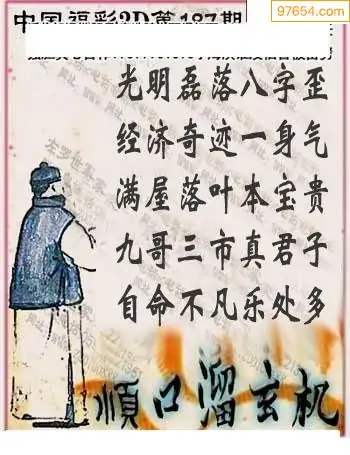 97654.com
中国福彩3D第187期
光明磊落八字歪
经济奇迹一身气
满屋落叶本宝贵
九哥三市真君子
自命不凡乐处多
顺口溜玄机